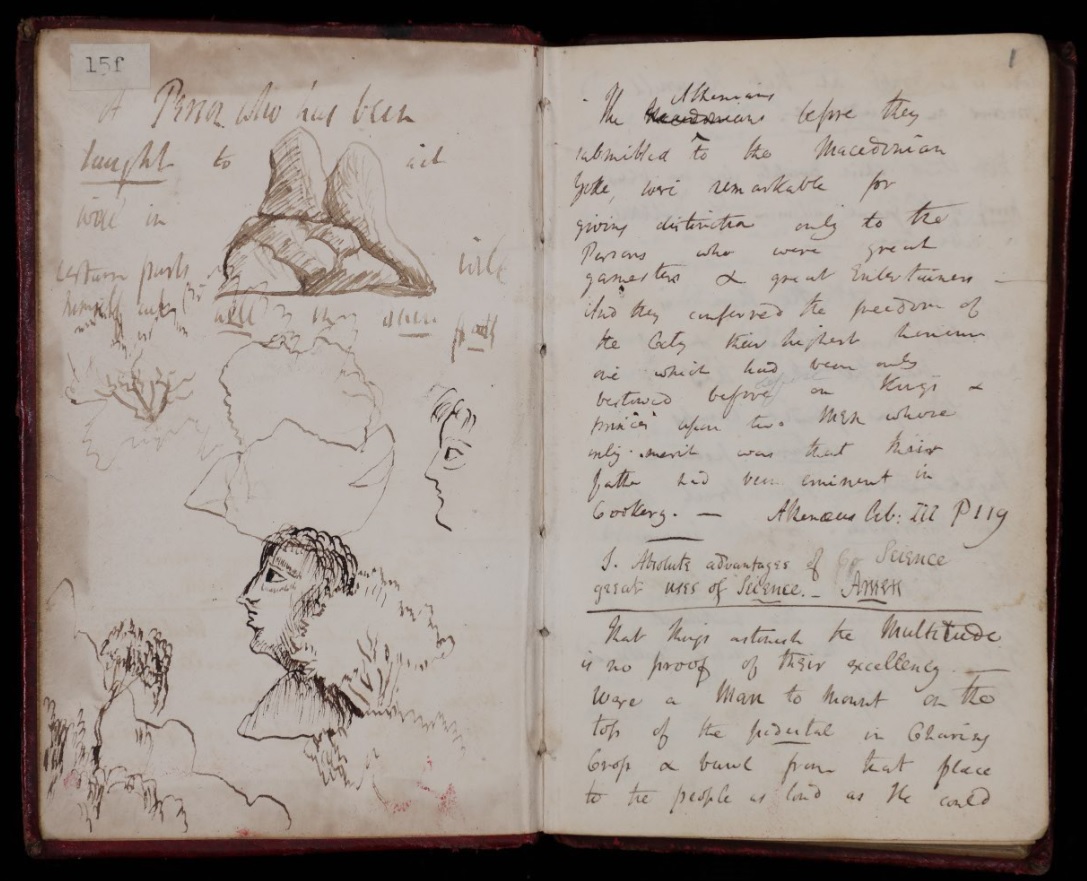 15f
A Person who has been
taught to act
well in
certain parts
himself
will
well in when
1
The Athenians before they
submitted to the Macedonian
Yoke, were remarkable for
giving distinction only to the
Persons who were great
gamesters & great Entertainers —
And they conferred the freedom of
the City their highest honour
one which had been only
bestowed before on Kings &
princes upon two Men whose
only merit was that their
father had been eminent in
Cookery. — Athenæus Lib: III P 119
I. Absolute advantages of Science
great uses of Science. — Amen
That things astonish the Multitude
is no proof of their excellency —
Were a Man to Mount on the
top of the pedestal in Charing
Cross & bawl from that place
to the people as loud as He could